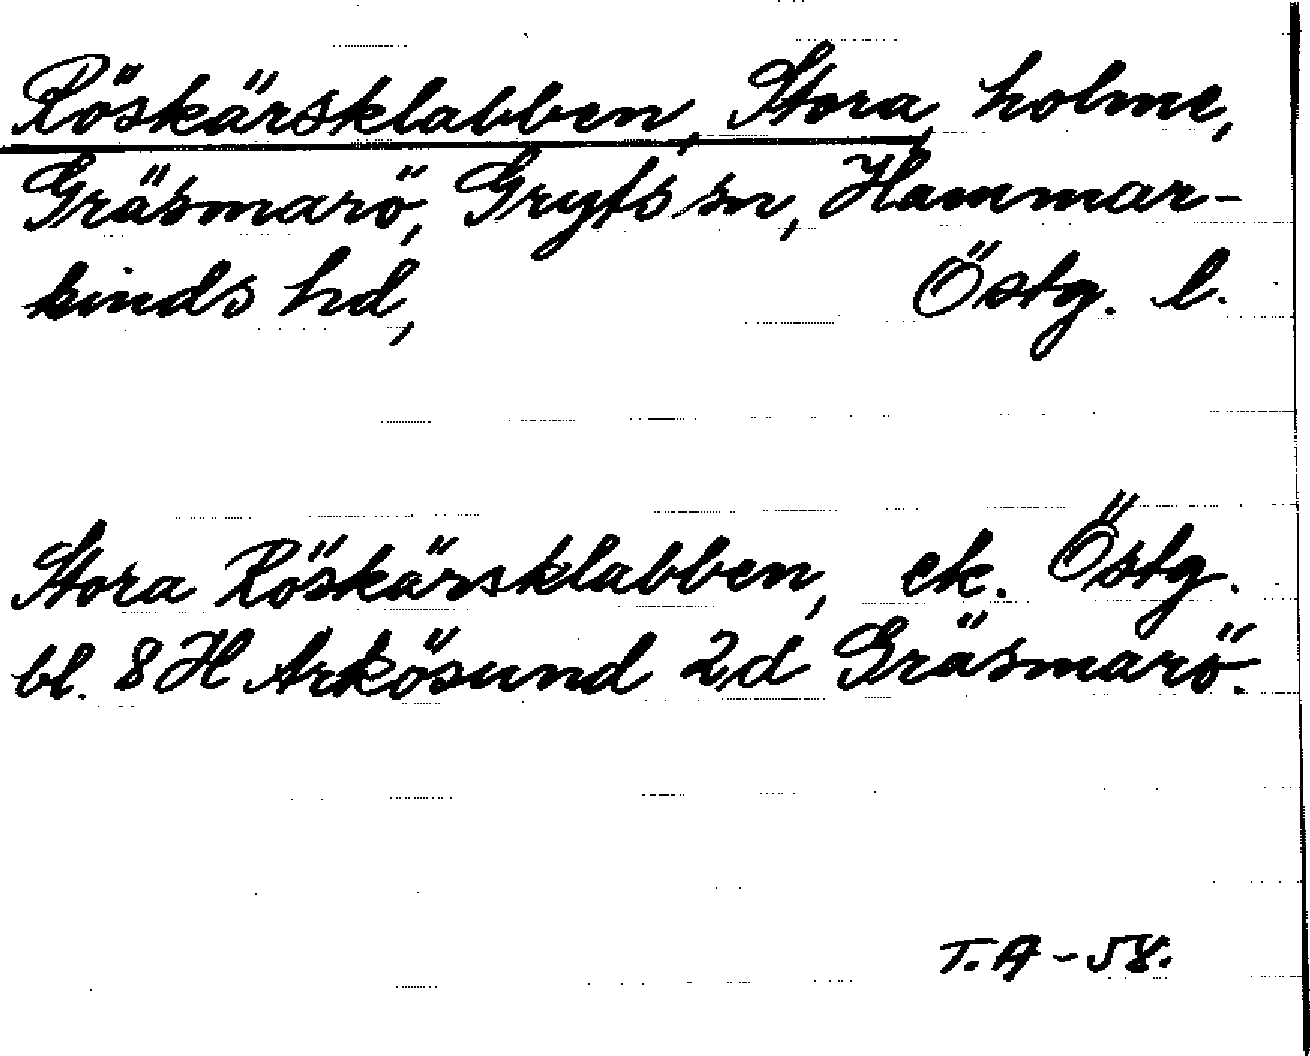 Röskärsklabben, Stora, holme,
Gräsmarö, Gryts sn, Hammar-
kinds hd, Östg. l.
Stora Röskärsklabben, ek. Östg.
bl. 8H Arkösund 2,d Gräsmarö.
T.A-58.